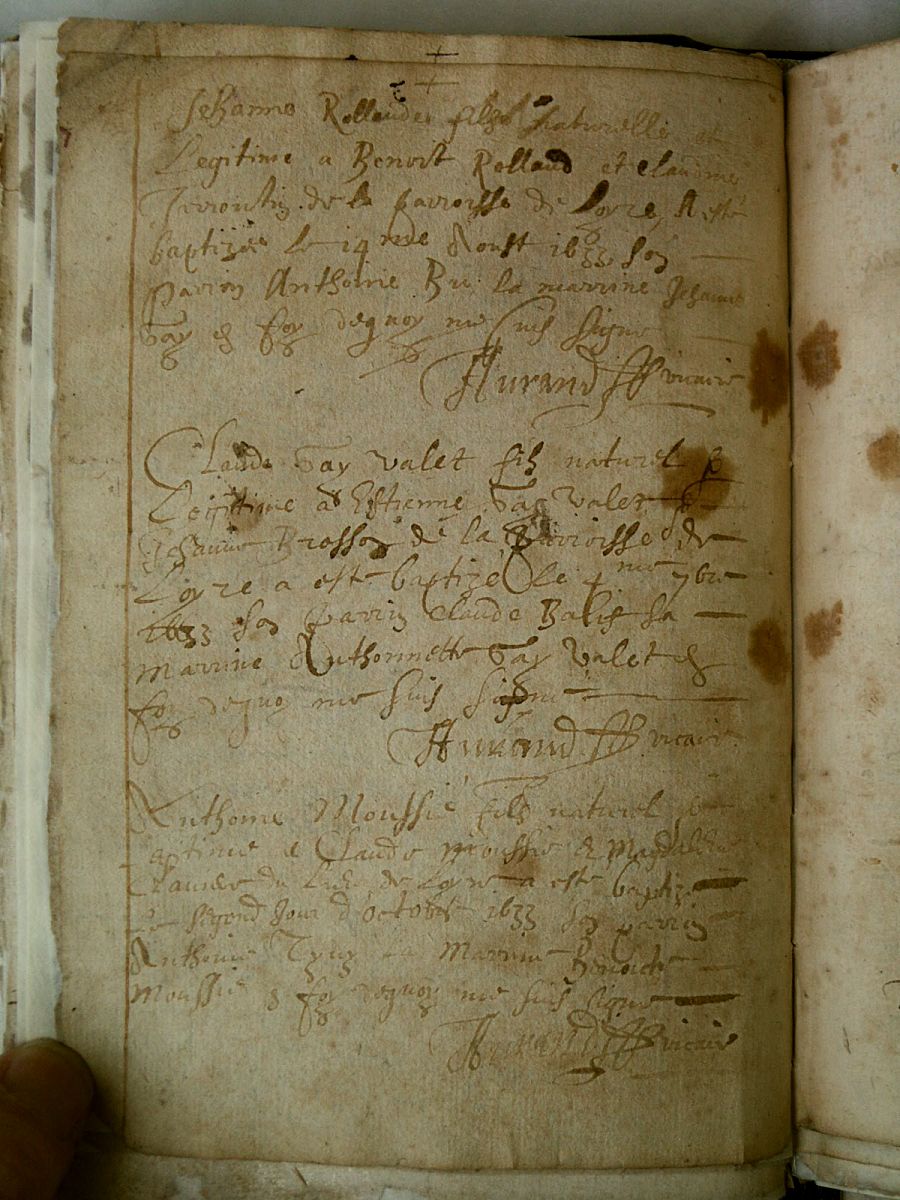 Jehanne Rollaude fille naturelle et
Legitime a Benoist Rolland et Claudine
de la parroisse de Loyre, A esté
baptizée le 14 me Aoust 1633 son
parrin Anthoine Bu la marrine Jehanne
Gay en foy dequoy me suis signé
Hurand vicaire
Claude Gay Valet filz naturel &
Legitime a Estienne Gay Valet &
Jehanne Brosson de la Parroisse de
Loyre a esté baptizé Le 4 me 7bre
1633 son parrin Claude Balif sa
Marrine Anthonnette Gay Valet en
foy dequoy me suis signé
Hurand vicaire
Anthoine Moussie filz naturel &
Legitime a Claude Moussie & Magdaleine
du Lieu de Loyre a esté baptizé
Le segond Jour d'Octobre 1633 son parrin
Anthoine et Marrine Benoiste
Moussie en foy dequoy me suis signé
Hurand vicaire